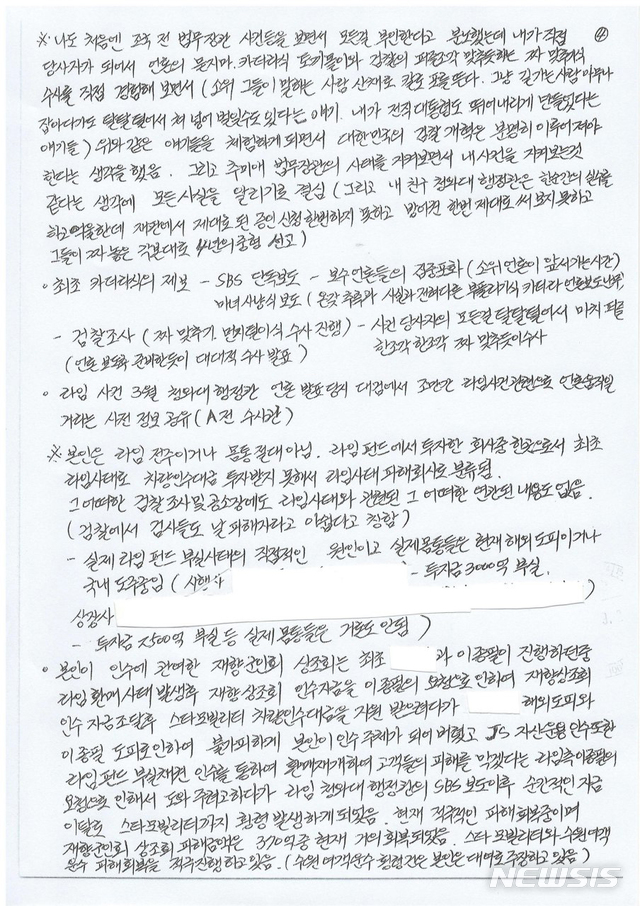 ④
※ 나도 처음엔 조국 전 법무장관 사건들을 보면서 모든걸 부인한다고 분노했는데 내가 직접
당사자가 되어서 언론의 묻지마. 카더라식 토끼몰이와 검찰의 퍼즐조각 맞추듯하는 짜 맞추기식
수사를 직접 경험해 보면서 (소위 그들이 말하는 사람 산채로 칼로 포를 뜬다. 그냥 길가는사람 아무나
잡아다가도 탈탈 털어서 쳐 넣어 벌일수도 있다는 얘기. 내가 전직대통령도 뛰어내리게 만들었다는
얘기들) 위와 같은 얘기들을 체험하게 되면서 대한민국의 검찰 개혁은 분명히 이루어져야
한다는 생각을 했음. 그리고 추미애 법무장관의 사태를 지켜보면서 내 사건을 지켜보는것
같다는 생각에 모든사실을 알리기로 결심 (그리고 내 친구 청와대 행정관은 한순간의 실수를
하고 억울한데 재판에서 제대로 된 증인 신청 한번하지 못하고 방어권 한번 제대로 써 보지 못하고
그들이 짜 놓은 각본대로 4년의 중형 선고)
• 최초 카더라식의 제보 - SBS 단독보도 - 보수언론들의 집중포화 (소위 언론이 앞서가는시간)
마녀 사냥식 보도 (온갖 추측과 사실과 전혀다른 부풀리기식 카더라 언론보도난무)
- 검찰조사 (짜 맞추기. 먼지털이식 수사 진행) - 사건 당사자의 모든걸 탈탈털어서 마치 퍼즐
(언론 보도와 준비한듯이 대대적 수사 발표) 한조각 한조각 짜 맞추듯이수사
• 라임 사건 3월 청와대행정관 언론 발표당시 대검에서 조만간 라임사건관련으로 언론움직일
거라는 사전 정보 공유 (A전 수사관)
※ 본인은 라임 전주이거나 몸통 절대 아님. 라임 펀드에서 투자한 회사중 한곳으로서 최초
라임사태로 차량인수대금 투자받지 못해서 라임사태 피해회사로 분류됨.
그 어떠한 검찰 조사및 공소장에도 라임사태와 관련된 그 어떠한 연관된 내용도 없음.
(검찰에서 검사들도 날 피해자라고 아쉽다고 칭함)
- 실제 라임 펀드 부실사태의 직접적인 원인이고 실제몸통들은 현재 해외도피이거나
국내 도주중임 (시행사 - 투자금 3000억 부실.
상장사 )
- 투자금 2500억 부실 등 실제 몸통들은 거론도 안됨)
• 본인이 인수에 관여한 재향군인회 상조회는 최초 과 이종필이 진행하던중
라임 환매사태 발생후 재향 상조회 인수자금을 이종필의 요청으로 인하여 재향상조회
인수 자금조달후 스타모빌리티 차량인수대금을 지원 받으려다가 해외도피와
이종필 도피로 인하여 불가피하게 본인이 인수주체가 되어 버렸고 JS 자산운용 인수또한
라임펀드 부실채권 인수를 통하여 환매재개하여 고객들의 피해를 막겠다는 라임측이종필의
요청으로 인해서 도와 주려고하다가 라임 청와대 행정관의 SBS 보도이후 순간적인 자금
이탈로 스타모빌리티까지 횡령 발생하게 되었음. 현재 적극적인 피해회복중이며
재향군인회 상조회 피해금액은 370억중 현재 거의 회복되었음. 스타모빌리티와 수원여객
운수 피해회복을 적극진행 하고 있음. (수원 여객운수 횡령건은 본인은 대여로 주장하고 있음)
NEWSIS